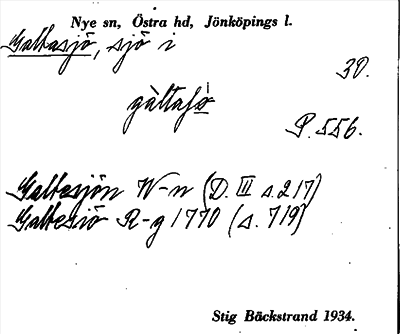 Nye sn, Östra hd, Jönköpings l.
Galtasjö, sjö i
3D.
gàltaʃö̀
P. 556.
Galtesjön W-n (D. III s. 217)
Galtesiö R-g 1770 (s. 719)
Stig Bäckstrand 1934.